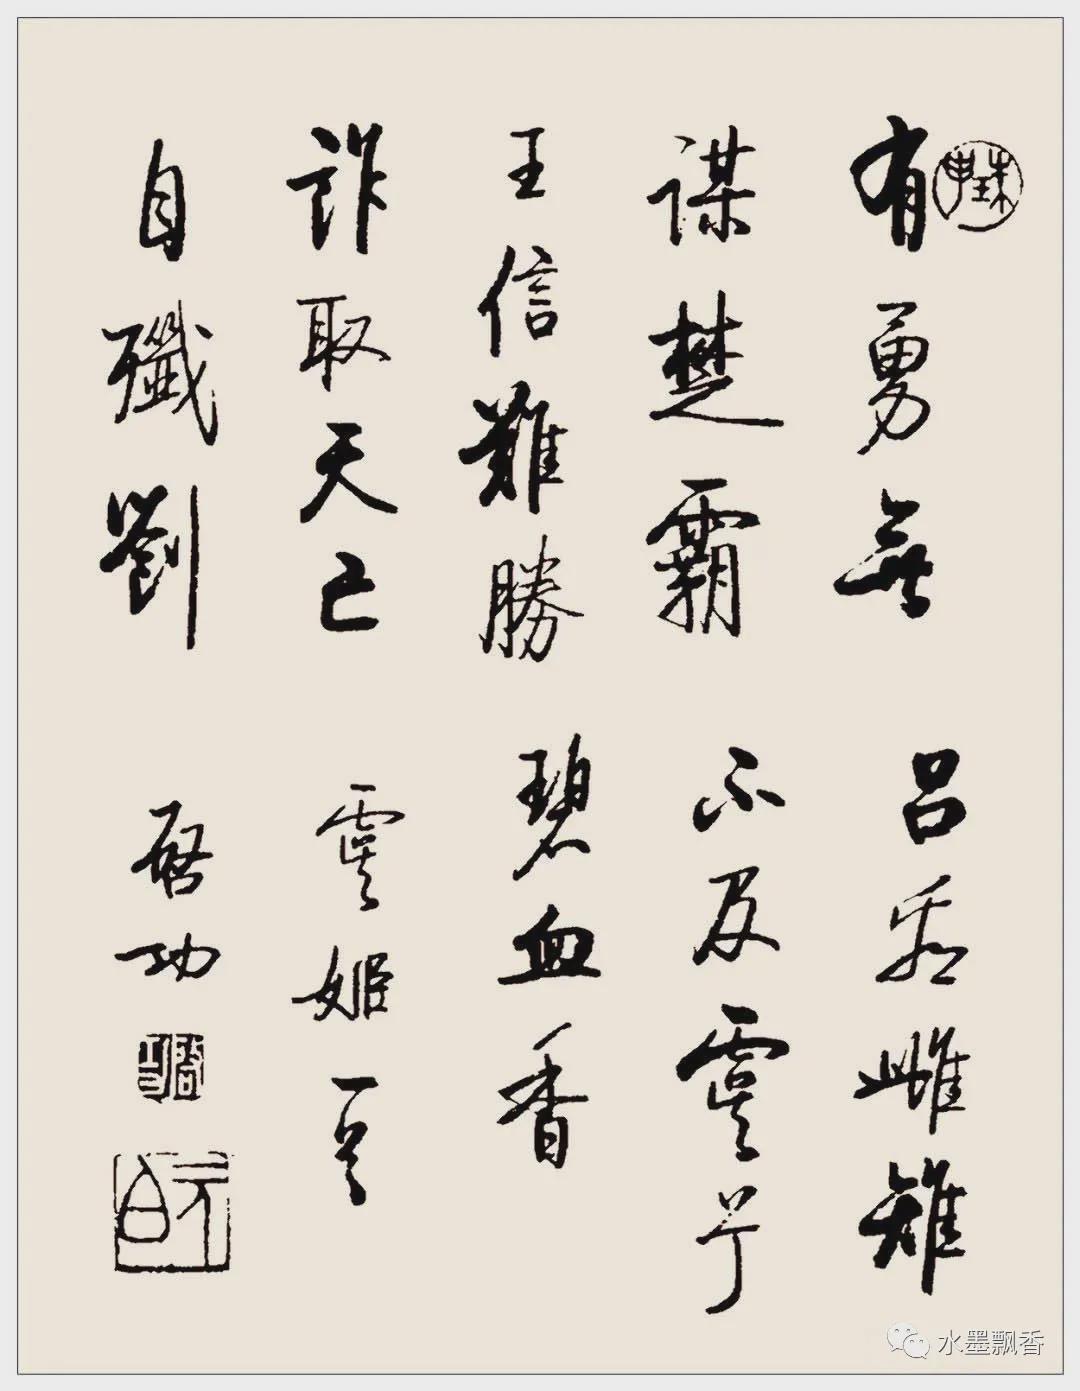 珠申
有勇無
謀楚霸
王信難勝
詐取天亡
自殲劉
呂雌雉
不及虞兮
碧血香
虞姬
啓功
元白
水墨飘香